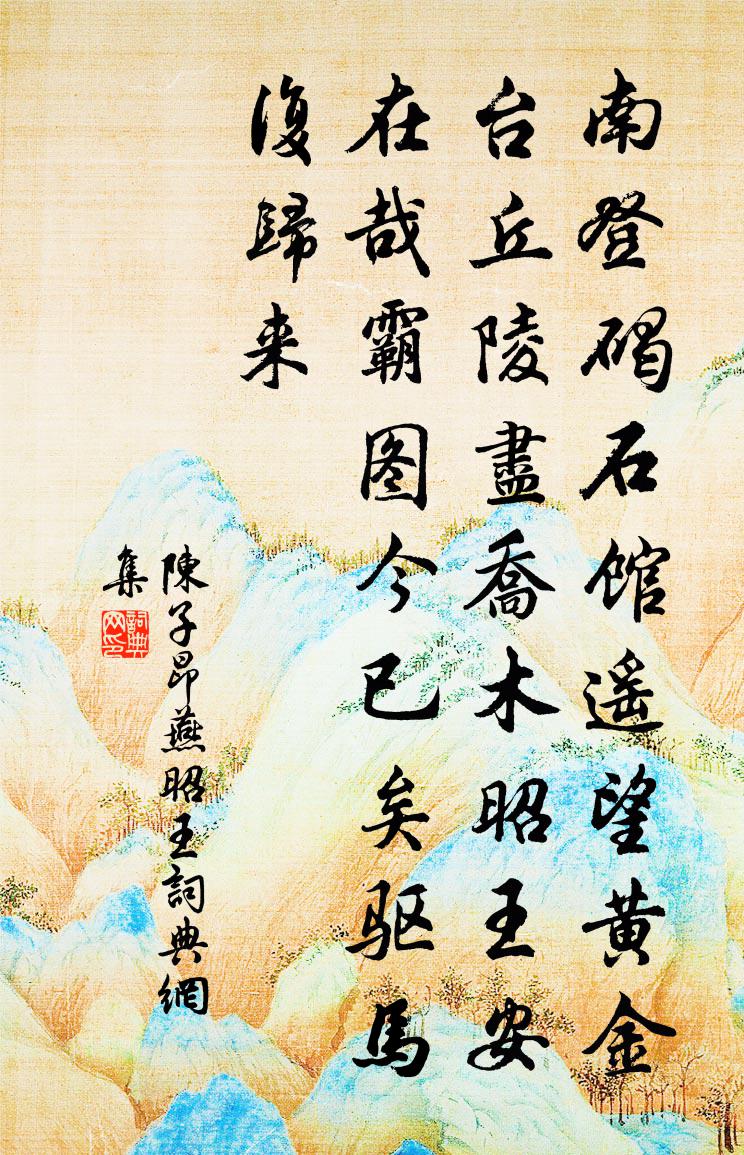 南登碣石馆遥望黄金
台丘陵盡喬木昭王安
在哉霸图今已矣驱馬
復歸来
陳子昂燕昭王詞典網
集
詞典
网印